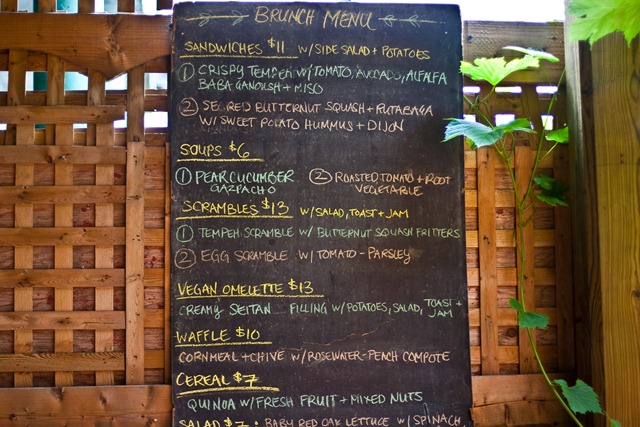 BRUNCH MENU
SANDWICHES $11 W/SIDE SALAD + POTATOES
① CRISPY TEMPEH W/TOMATO, AVOCADO, ALFALFA
BABA GANOUSH + MISO
② SEARED BUTTERNUT SQUASH + RUTABAGA
W/ SWEET POTATO HUMMUS + DIJON
SOUPS $6
① PEAR CUCUMBER
GAZPACHO
② ROASTED TOMATO + ROOT
VEGETABLE
SCRAMBLES $13 W/SALAD, TOAST + JAM
① TEMPEH SCRAMBLE W/ BUTTERNUT SQUASH FRITTERS
② EGG SCRAMBLE W/ TOMATO - PARSLEY
VEGAN OMELETTE $13
CREAMY SEITAN FILLING W/POTATOES, SALAD, TOAST +
JAM
WAFFLE $10
CORNMEAL + CHIVE W/ROSEWATER-PEACH COMPOTE
CEREAL $7
QUINOA W/FRESH FRUIT + MIXED NUTS
SALAD $7 : BABY RED OAK LETTUCE W/ SPINACH,